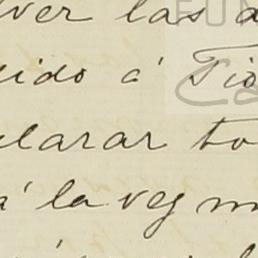 lver las a
dido á Tio
clarar to
á la vez m